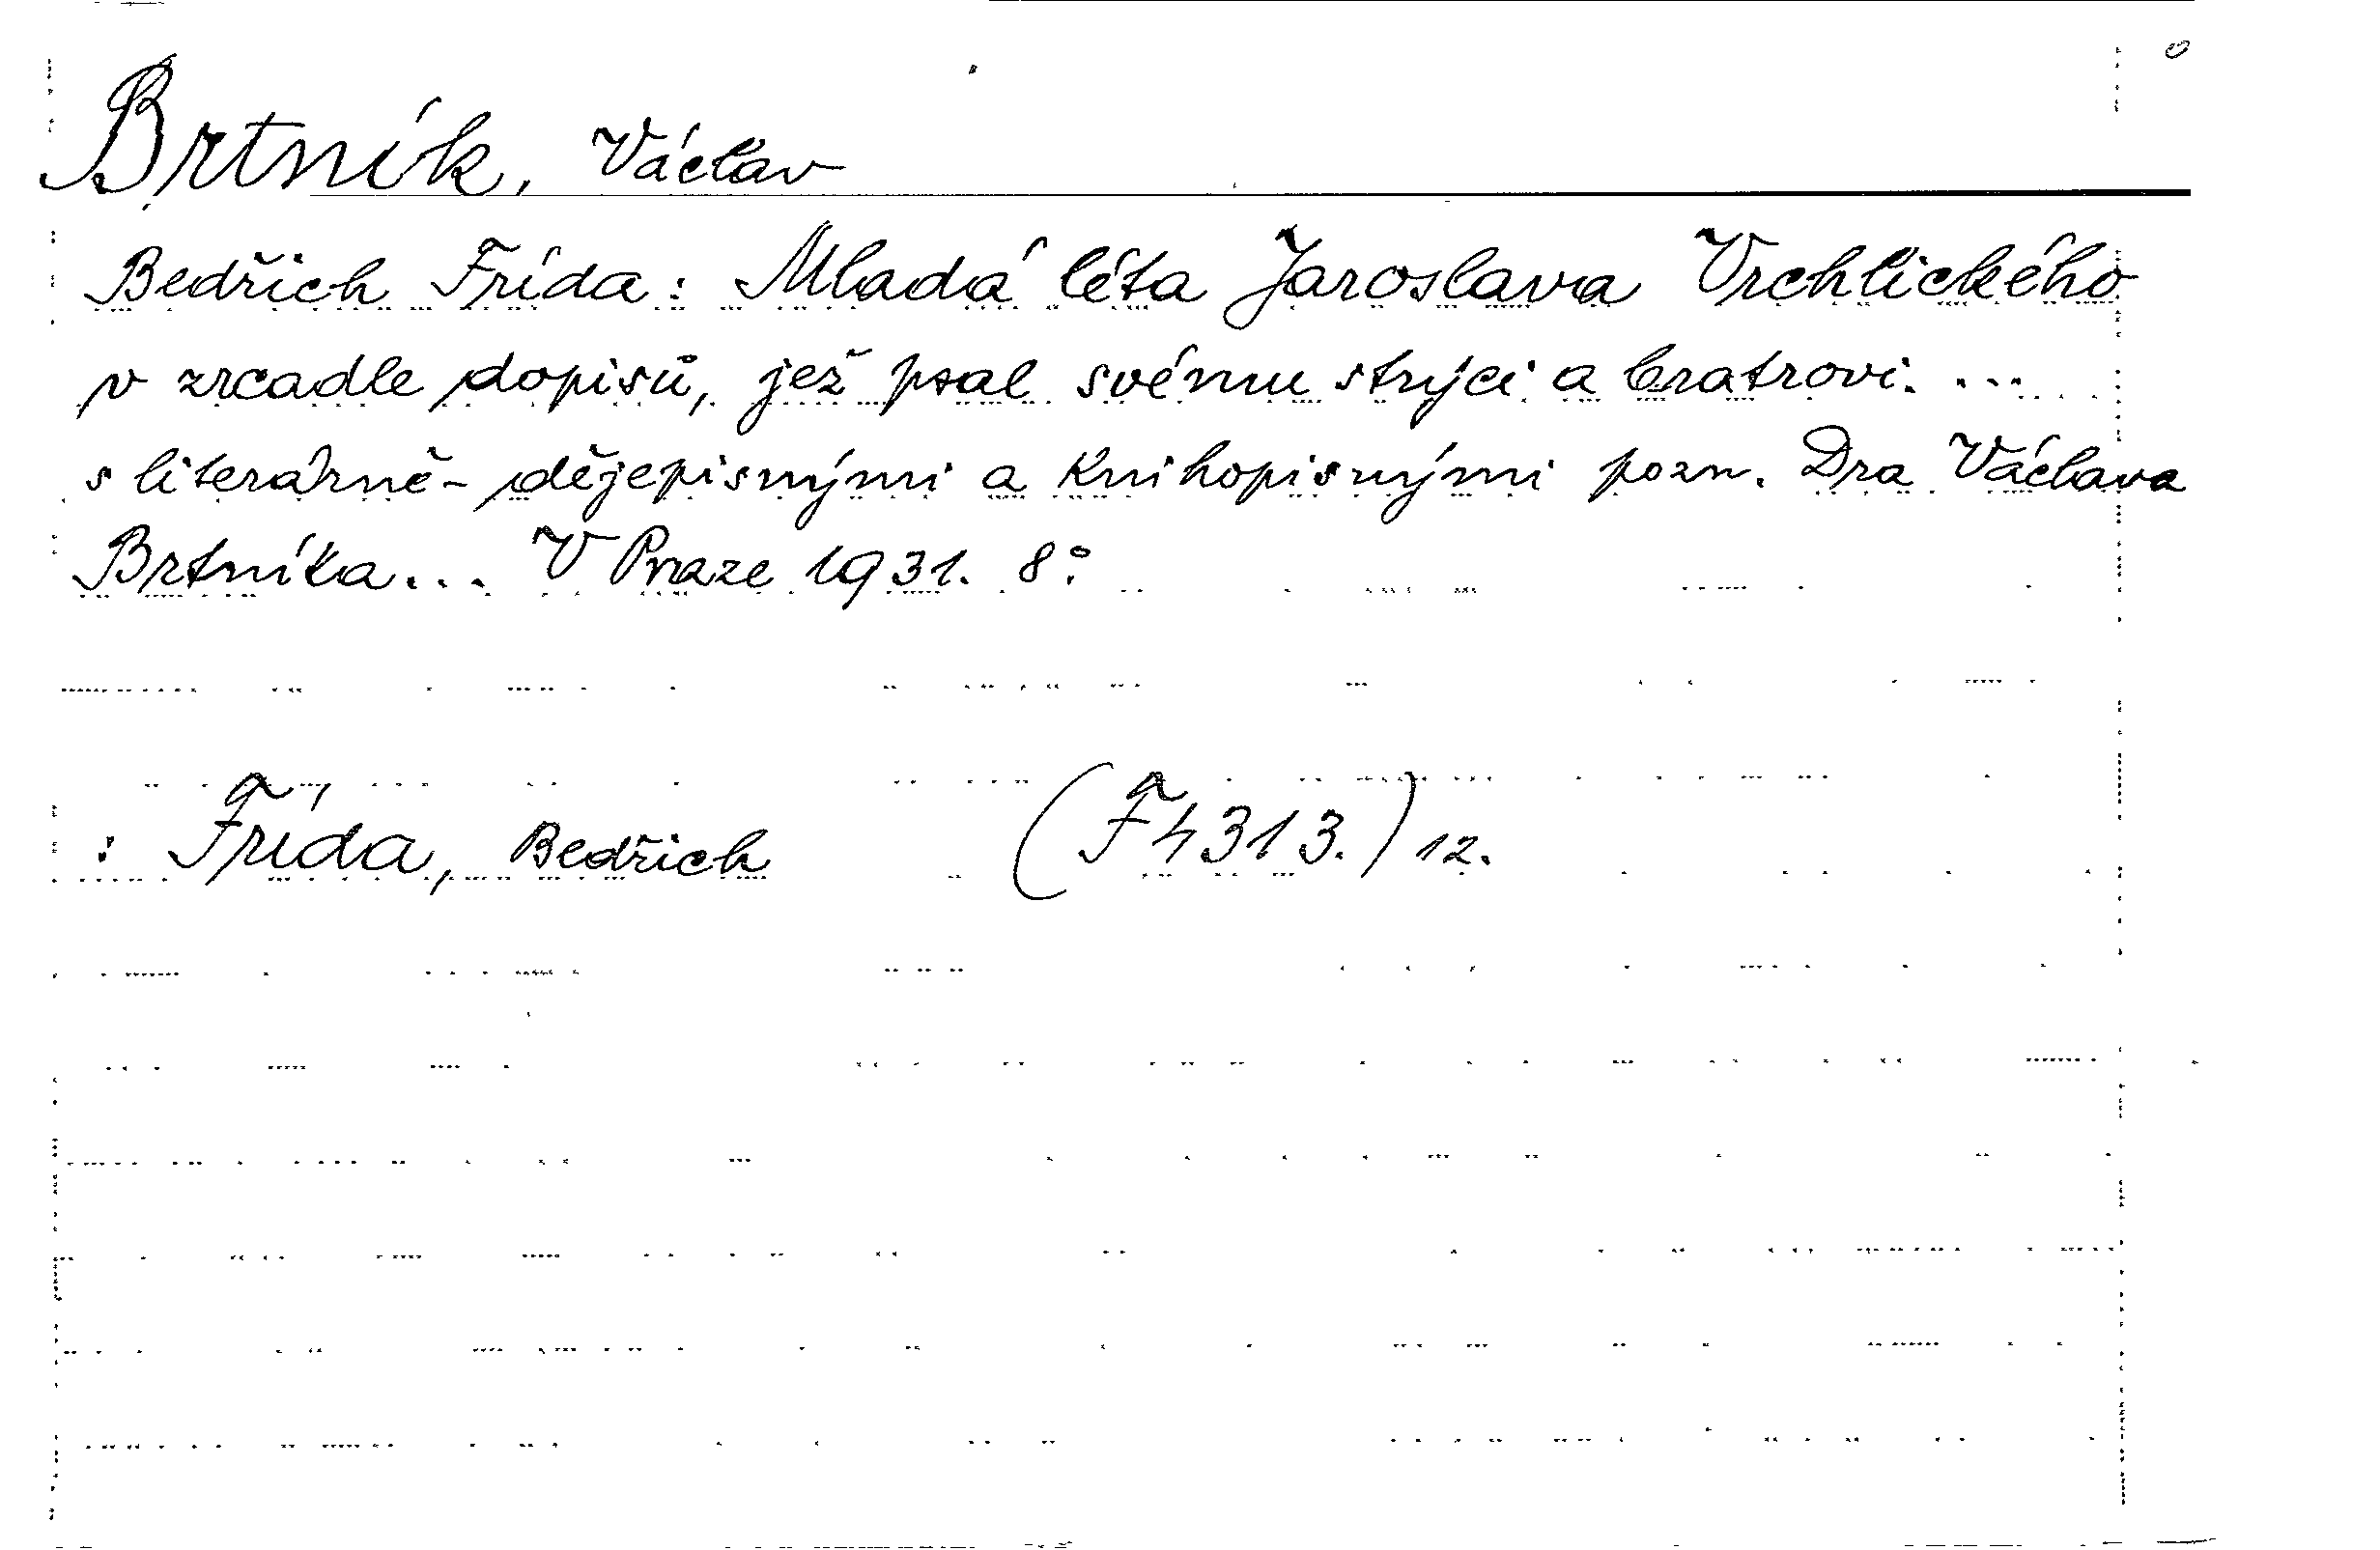 Brtník, Václav
Bedřich Frída: Mladá léta Jaroslava Vrchlického
v zrcadle dopisů, jež psal svému strýci a bratrovi. ...
s literárně-dějepisnými a knihopisnými pozn. Dra Václava
Brtníka... V Praze 1931. 8°.
: Frída, Bedřich (F 4313.) 12.